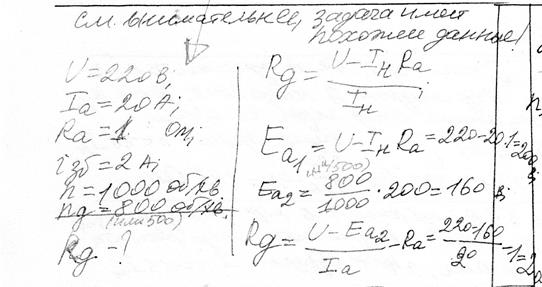 см. внимательнее, задача имеет
похожие данные!
U=220 В;
Ia=20 А;
Ra=1 Ом;
iзб=2 А;
n=1000 об/хв
nд=800 об/хв.
(или 500)
Rд-?
Rд = (U-IнRa)/Iн;
Ea1 = U-IнRa=220-20·1=200 В
(или 500)
Ea2 = 800/1000 · 200=160 В;
Rд = (U-Ea2)/Ia - Ra = (220-160)/20 - 1=2